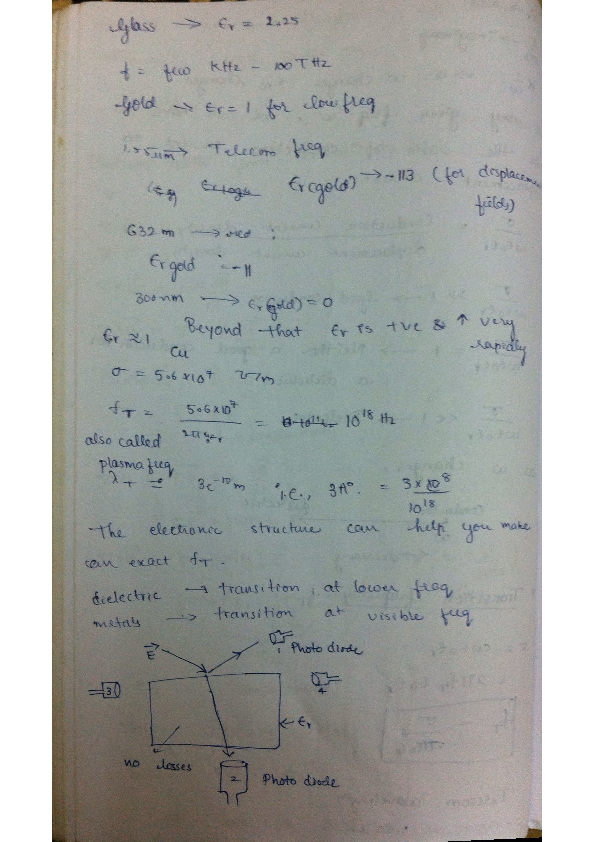 Glass → εr = 2.25
f = few KHz - 100 THz
Gold → εr = 1 for low freq
1.55µm → Telecom freq
εr(gold) → -113 (for displacement fields)
632 m → red :
εr gold = -11
300nm → εr(gold) = 0
Beyond that εr is +ve & ↑ very rapidly
εr ≈ 1
Cu
σ = 5.6 × 10⁷ ℧/m
fT = 5.6×10⁷ / 2πε₀εr = 10¹⁸ Hz
also called
plasma freq
λT = 3e⁻¹⁰ m i.e., 3A° = 3 × 10⁸ / 10¹⁸
The electronic structure can help you make
an exact fT.
dielectric → transition at lower freq
metals → transition at visible freq
E
1 Photo diode
3
4
← εr
no losses
2 Photo diode